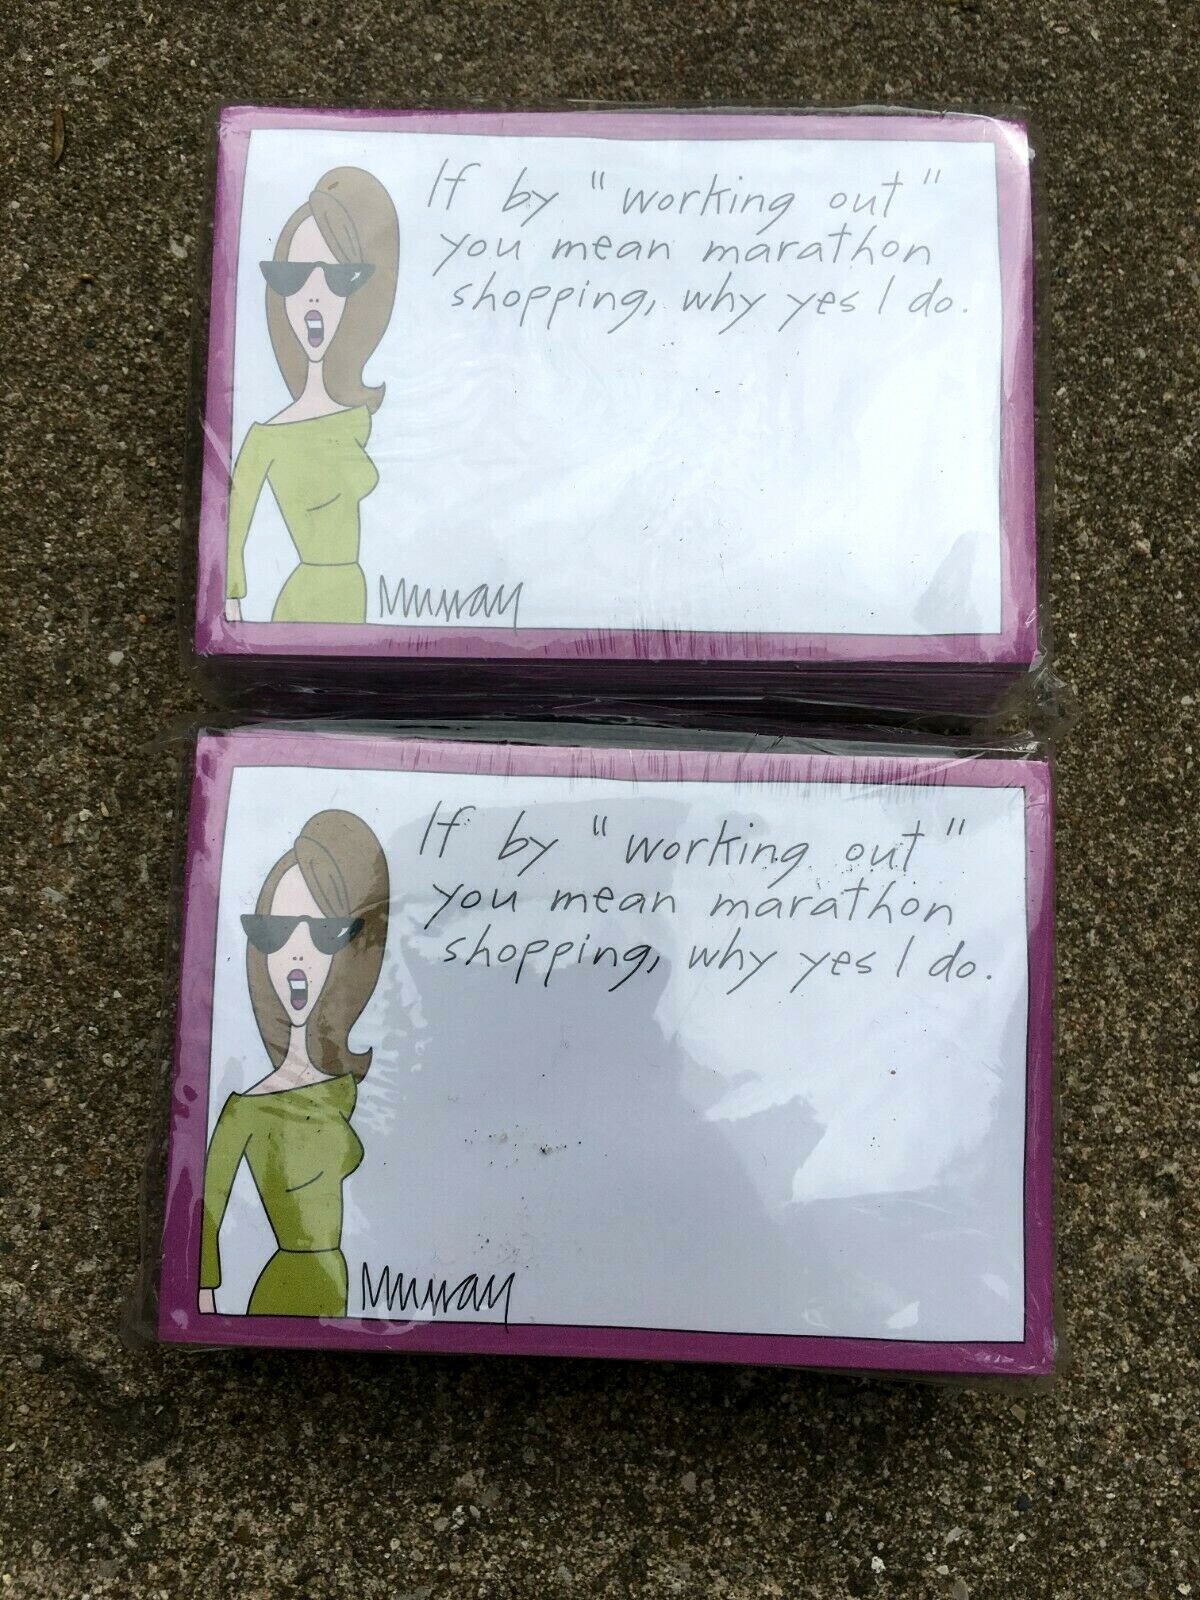 If by "working out"
you mean marathon
shopping, why yes I do.
Murray
If by "working out"
you mean marathon
shopping, why yes I do.
Murray